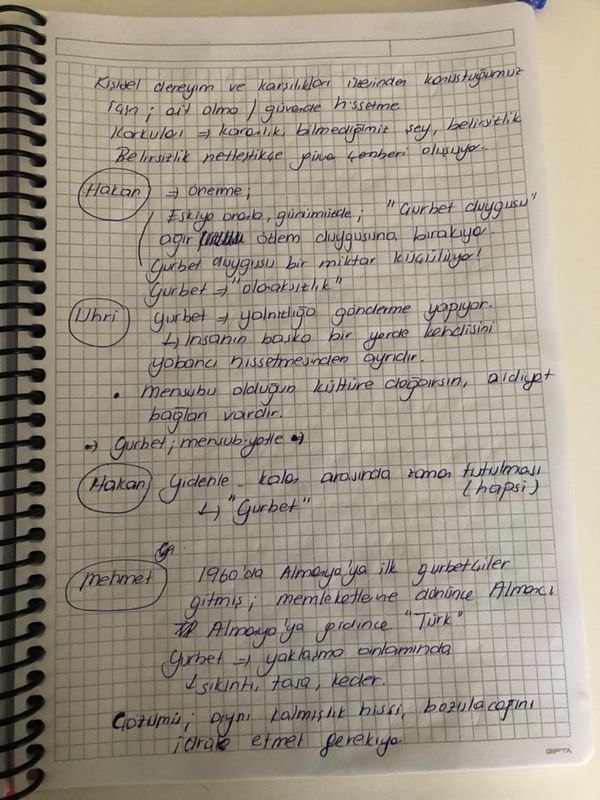 Kişisel deneyim ve karşılıkları üzerinden konuştuğumuz
için; ait olma / güvende hissetme
Korkuları → karanlık, bilmediğimiz şey, belirsizlik
Belirsizlik netleştikçe güven çemberi oluşuyor.
Hakan → önerme;
Eskiye oranla, günümüzde; "Gurbet duygusu"
ağır özlem duygusuna bırakıyor.
Gurbet duygusu bir miktar küçülüyor!
Gurbet → "olanaksızlık"
Uhri gurbet → yalnızlığa gönderme yapıyor.
↳ insanın başka bir yerde kendisini
yabancı hissetmesinden ayrıdır.
• mensubu olduğun kültüre doğarsın, aidiyet
bağları vardır.
→ Gurbet; mensubiyetle →
Hakan gidenle - kalan arasında zaman tutulması
(hapsi)
↳ "Gurbet"
Mehmet 1960'da Almanya'ya ilk gurbetçiler
gitmiş; memleketlerine dönünce Almancı
Almanya'ya gidince "Türk"
Gurbet → yaklaşma anlamında
↳ sıkıntı, tasa, keder.
Çözümü; aynı kalmışlık hissi, bozulacağını
idrak etmek gerekiyor
GIPTA